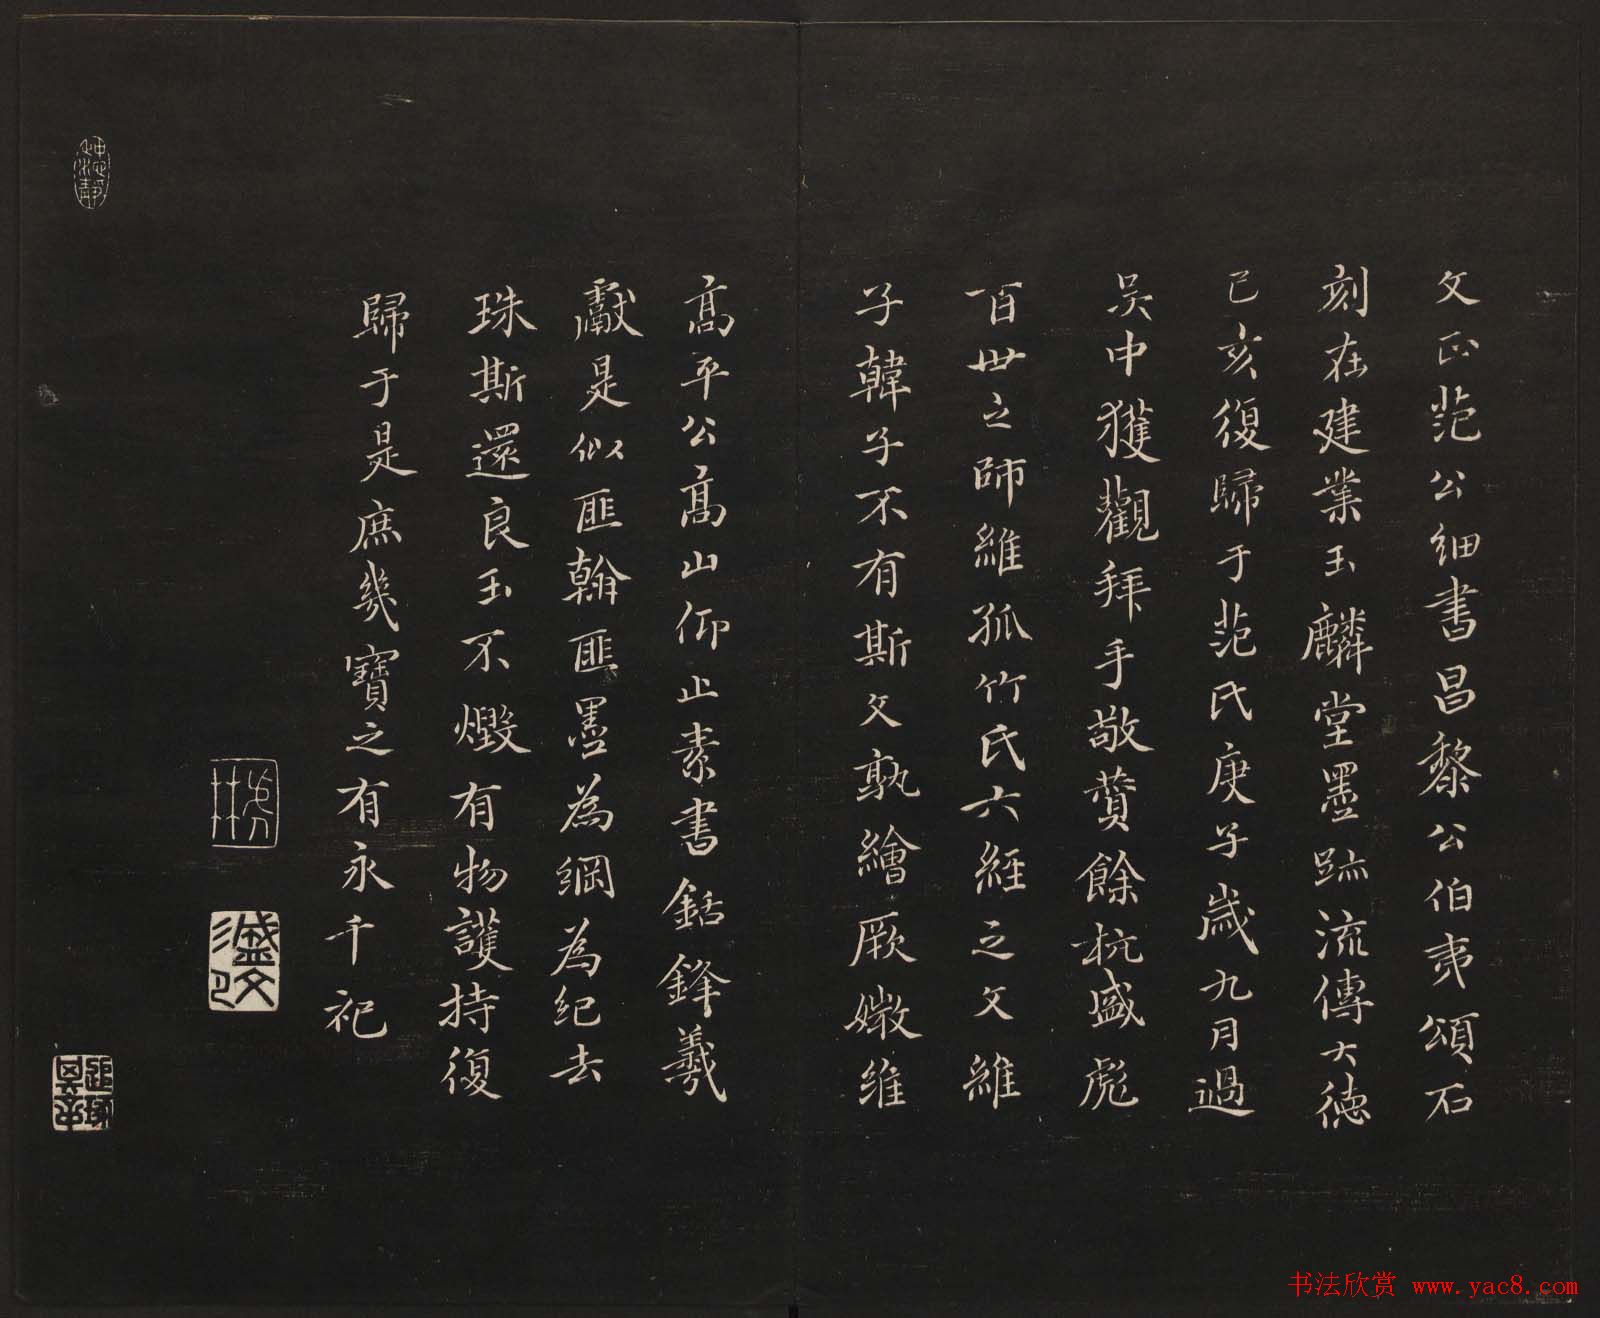 文正范公細書昌黎公伯夷頌石
刻在建業玉麟堂墨跡流傳大德
已亥復歸于范氏庚子歲九月過
吳中獲觀拜手敬贊餘杭盛彪
百世之師維孤竹氏六經之文維
子韓子不有斯文孰繪厥媺維
高平公高山仰止素書銛鋒羲
獻是似匪翰匪墨為綱為紀去
珠斯還良玉不燬有物護持復
歸于是庶幾寶之有永千祀
書法欣赏 www.yac8.com